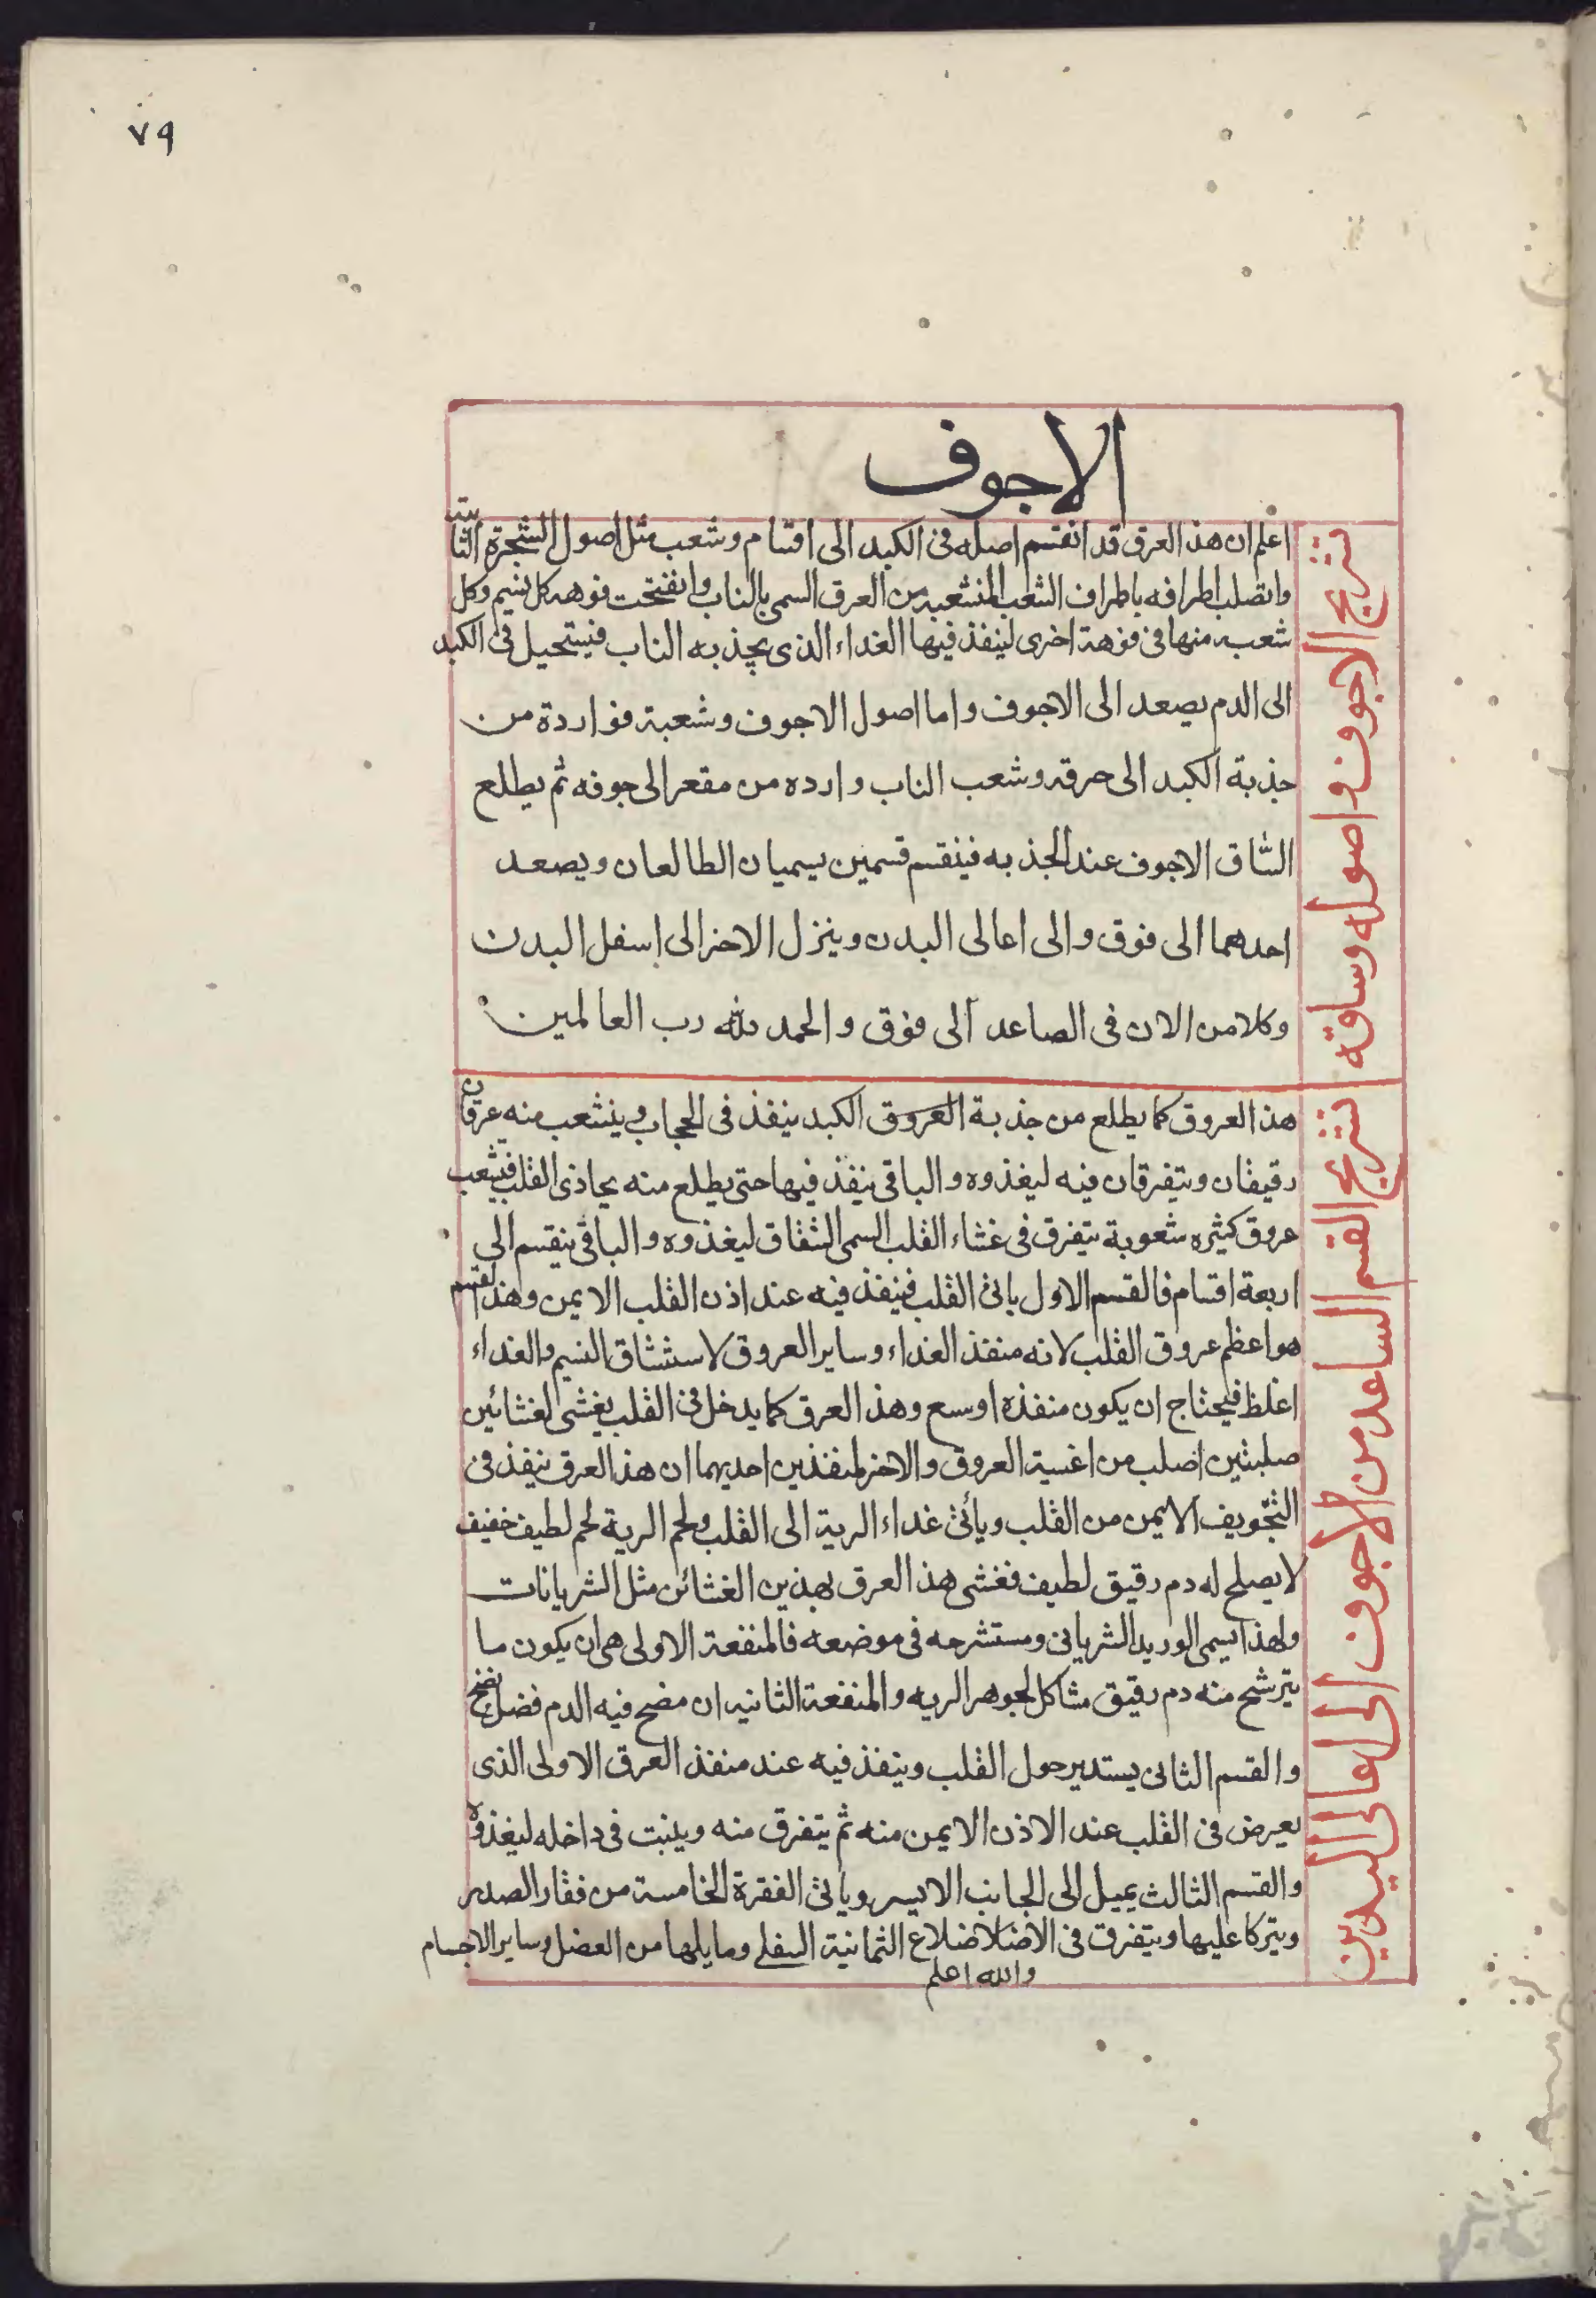 ٧٩
الاجوف
تشريح الاجوف واصوله وساقه
اعلم ان هذ العرق قد انقسم اصله فى الكبد الى اقسام وشعب مثل اصول الشجرة الثابتة
واتصلب اطرافه باطراف الشعب المنشعبه من العرق السمى بالناب وانفتحت فوهه كل نسيم وكل
شعبه منها فى فوهة اخرى لينفذ فيها الغداء الذى يجذبه الناب فيستحيل فى الكبد
الى الدم يصعد الى الاجوف واما اصول الاجوف وشعبة فواردة من
جذبة الكبد الى حرقه وشعب الناب وارده من مقعر الى جوفه ثم يطلع
الثاق الاجوف عند الجذبه فينقسم قسمين يسميان الطالعان ويصعد
احدهما الى فوق والى اعالى البدن وينزل الاخر الى اسفل البدن
وكلامن الان فى الصاعد الى فوق والحمد لله رب العالمين
تشريح القسم الساعد من الاجوف الى اعالى اليدين
هذ العروق كما يطلع من جذبة العروق الكبد ينفذ فى الحجاب وينشعب منه عرقان
رقيقان ويتفرقان فيه ليغذوه والباقى ينفذ فيها حتى يطلع منه يحاذى القلب فيشعب
عروق كثيره شعوبة تتفرق فى غشاء القلب السمى الشقاق ليغذوه والباقى ينقسم الى
اربعة اقسام فالقسم الاول باتى القلب فينفذ فيه عند اذن القلب الايمن وهذ القسم
هو اعظم عروق القلب لانه منفذ الغداء وساير العروق لاستشاق النسيم والغداء
اغلظ فيحتاج ان يكون منفذه اوسع وهذ العرق كما يدخل فى القلب يغشى لغشائين
صلبتين اصلب من اغسية العروق والاخر لمنفذين احديهما ان هذ العرق ينفذ فى
التجويف الايمن من القلب ويأتى غداء الرية الى القلب ولحم الرية لحم لطيف خفيف
لا يصلح له دم رقيق لطيف فغشى هذ العرق بهذين الغشائن مثل الشريانات
ولهذا يسمى الوريد الشريانى ومستشرحه فى موضعه فالمنفعة الاولى هى ان يكون ما
يترشح منه دم رقيق مشاكل لجوهر الريه والمنفعة الثانيه ان مضح فيه الدم فضل نضح
والقسم الثانى يستدير حول القلب وينفذ فيه عند منفذ العرق الاولى الذى
يعرض فى القلب عند الاذن الايمن منه ثم يتفرق منه وينبت فى داخله ليغذوه
والقسم الثالث يميل الى الجانب الايسر وياتى الفقرة الخامسة من فقار الصدر
ويتركا عليها ويتفرق فى الاضلاضلاع الثمانية السفلى وما يلها من العضل وساير الاجسام
والله اعلم